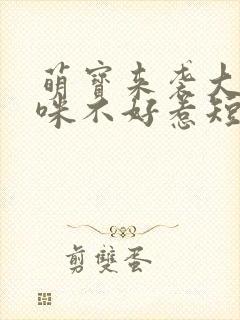 萌寶来袭大
咪不好惹短
剪雙蛋